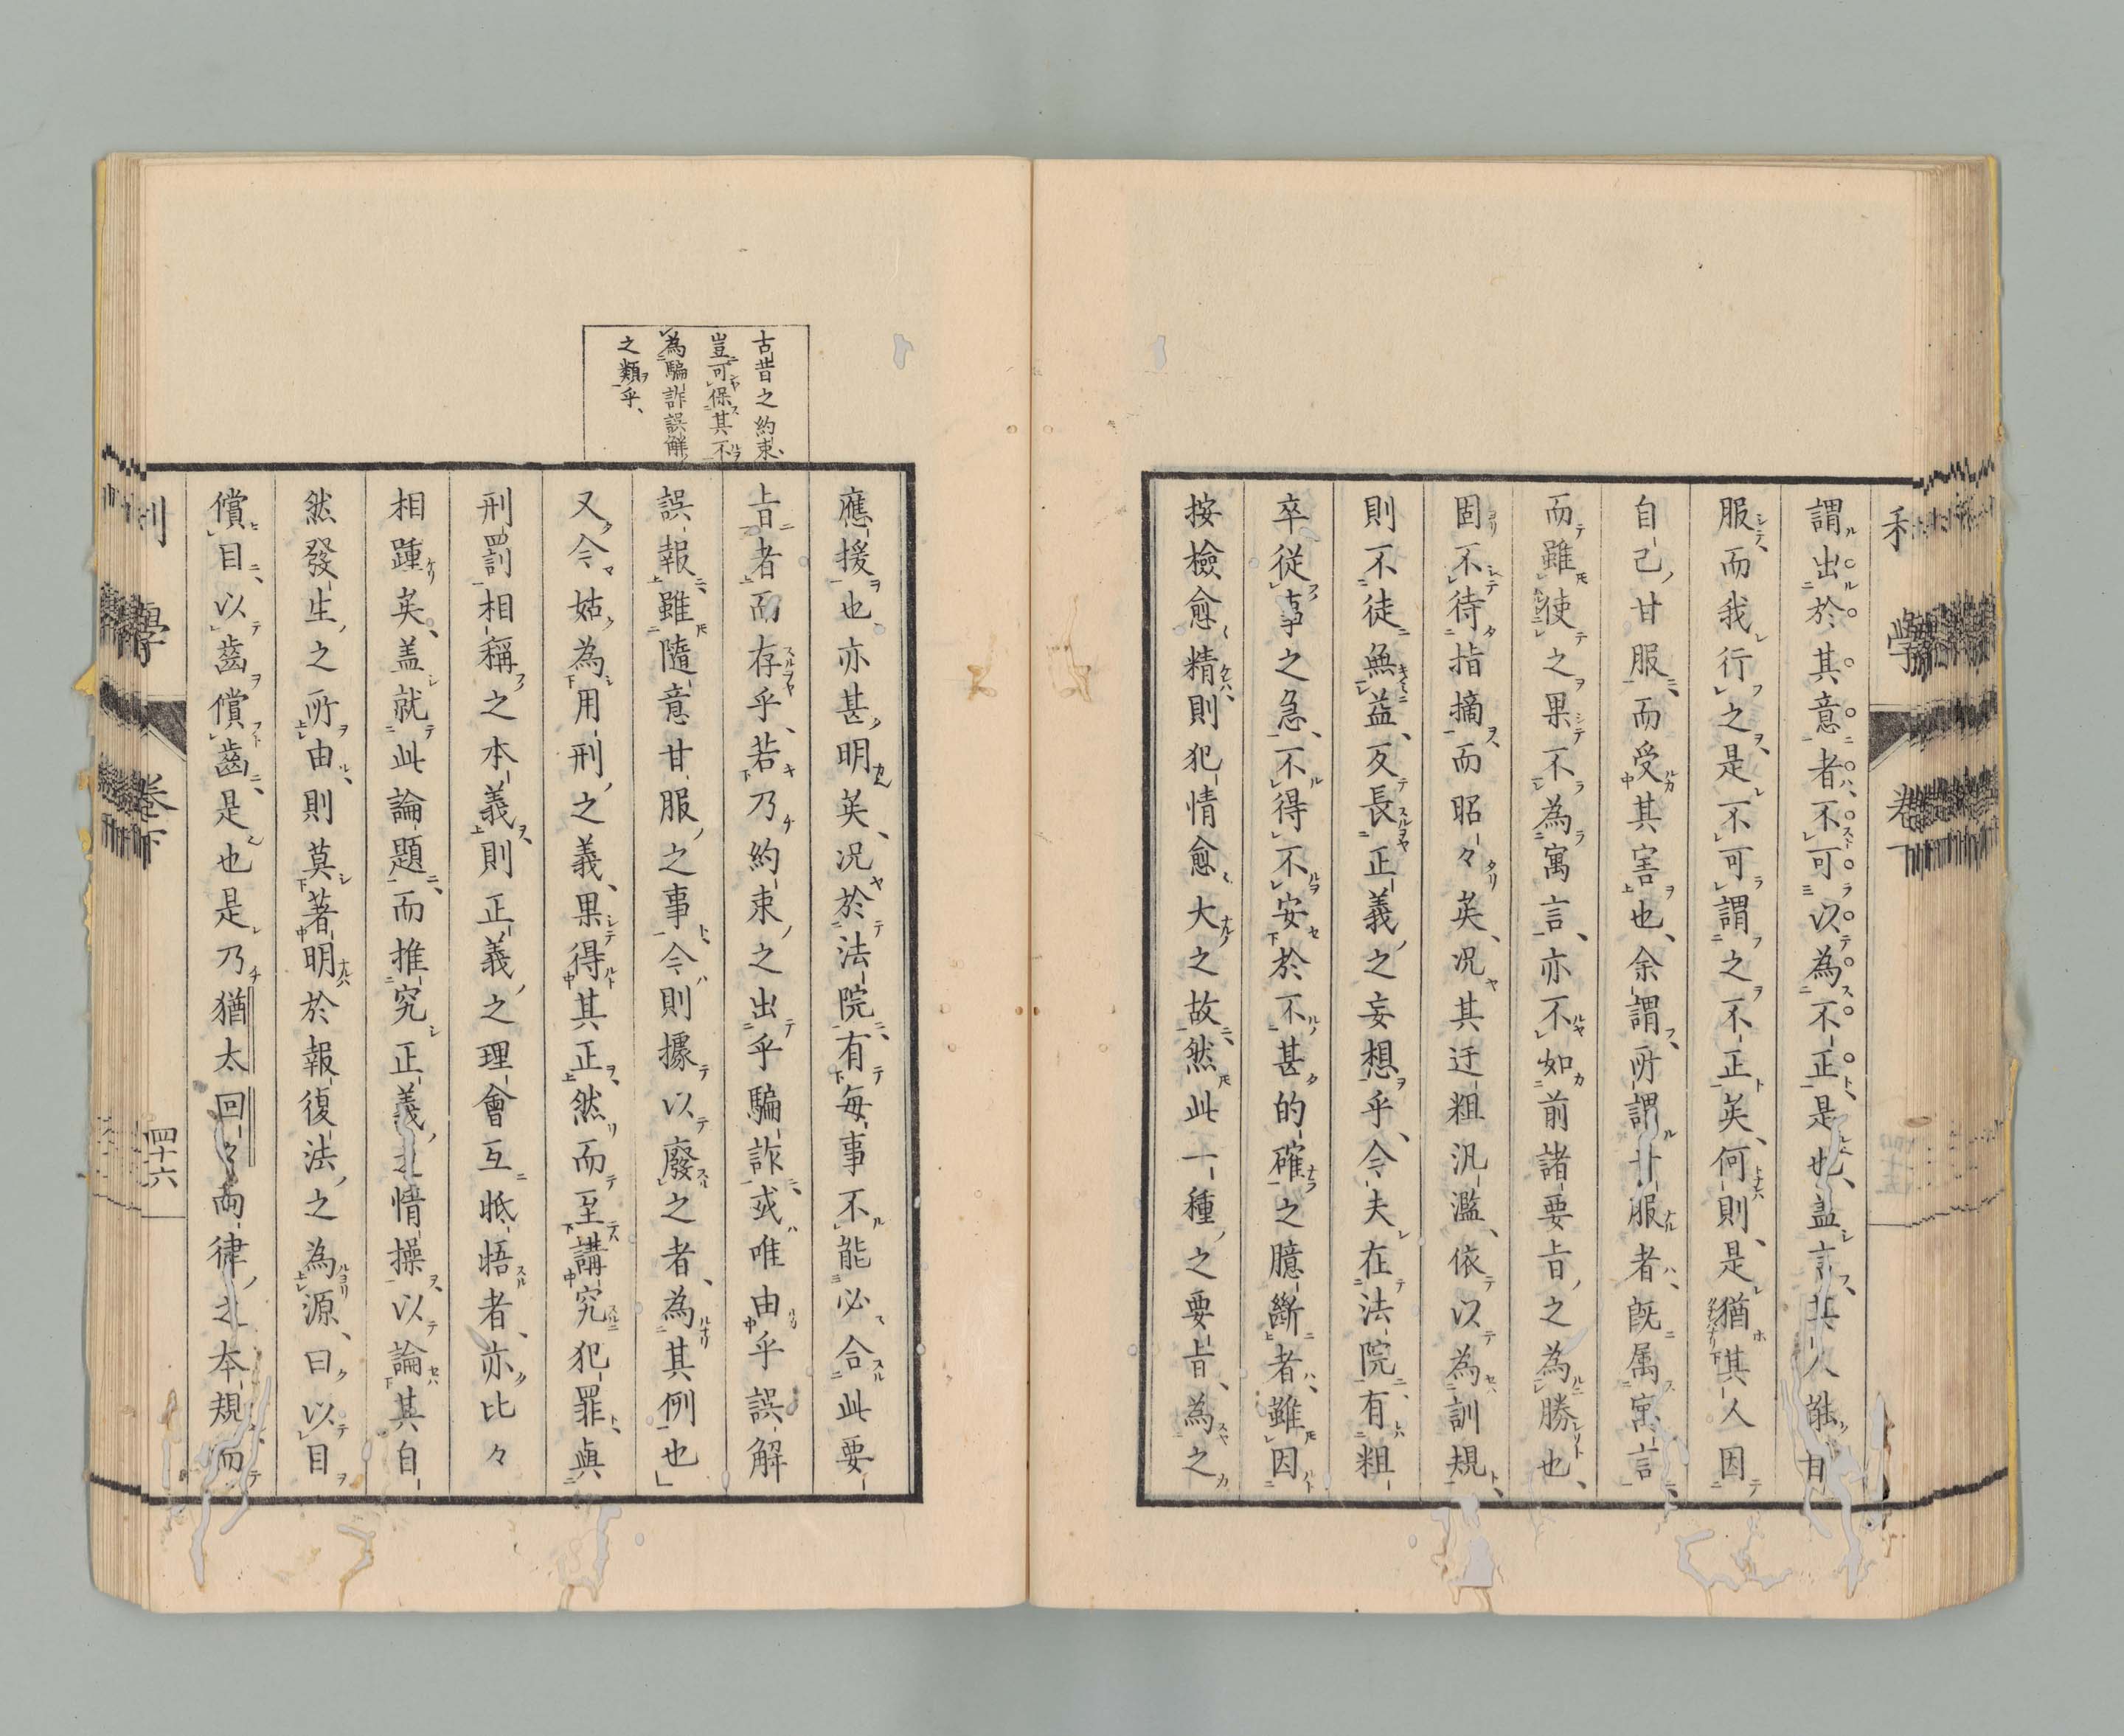 謂出於其意者不可以為不正是也蓋言其人能甘
服而我行之是不可謂之不正矣何則是猶其人因
自己甘服而受其害也余謂所謂甘服者既属寓言
而雖使之果不為寓言亦不如前諸要旨之為勝也
固不待指摘而昭々矣况其迂粗汎濫依以為訓規
則不徒無益反長正義之妄想乎今夫在法院有粗
卒從事之急不得不安於不甚的確之臆斷者雖因
按檢愈精則犯情愈大之故然此一種之要旨為之
古昔之約束
豈可保其不
為騙詐誤解
之類乎
應援也亦甚明矣况於法院有每事不能必合此要
旨者而存乎若乃約束之出乎騙詐或唯由乎誤解
誤報雖隨意甘服之事今則據以廢之者為其例也
又今姑為用刑之義果得其正然而至講究犯罪與
刑罰相稱之本義則正義之理會互牴牾者亦比々
相踵矣盖就此論題而推究正義之情操以論其自
然發生之所由則莫著明於報復法之為源曰以目
償目以齒償齒是也是乃猶太回々兩律之本規而
刑學 卷下 四十六